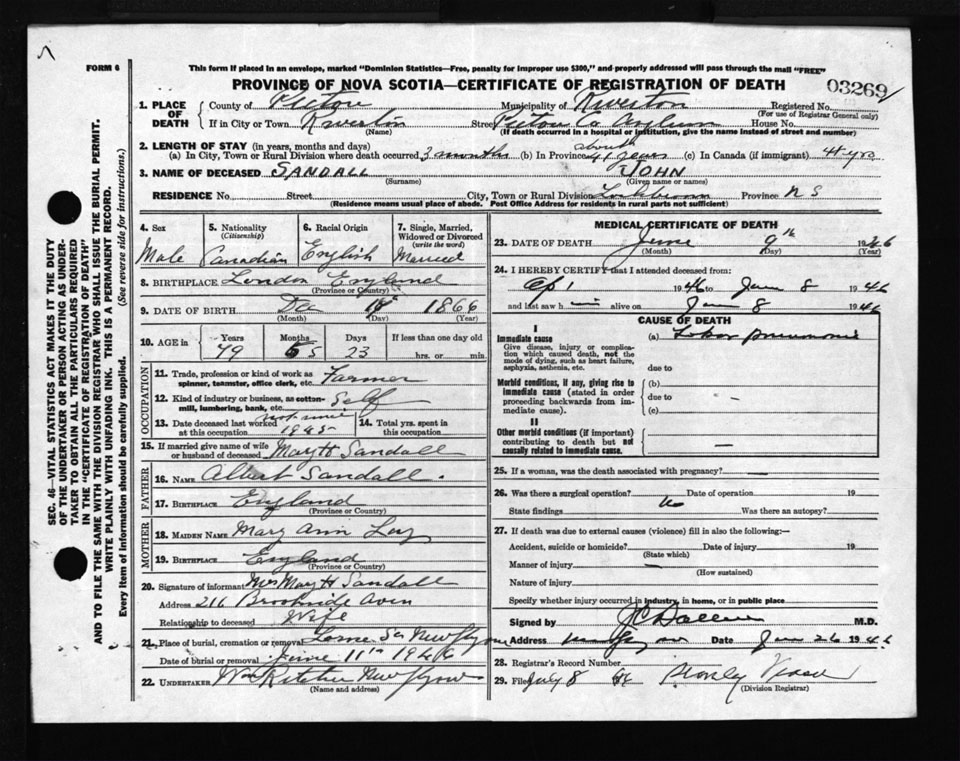 FORM 6
This form if placed in an envelope, marked "Dominion Statistics—Free, penalty for improper use $300," and properly addressed will pass through the mail "FREE"
PROVINCE OF NOVA SCOTIA—CERTIFICATE OF REGISTRATION OF DEATH
03269
1. PLACE OF DEATH County of Pictou Municipality of Riverton Registered No.
(For use of Registrar General only)
If in City or Town Riverton Street Pictou Co Asylum House No.
(Name) (If death occurred in a hospital or institution, give the name instead of street and number)
2. LENGTH OF STAY (in years, months and days)
(a) In City, Town or Rural Division where death occurred 3 months (b) In Province about 41 years (c) In Canada (if immigrant) 41 yrs
3. NAME OF DECEASED SANDALL JOHN
(Surname) (Given name or names)
RESIDENCE No. Street City, Town or Rural Division Province N S
(Residence means usual place of abode. Post Office Address for residents in rural parts not sufficient)
4. Sex
Male
5. Nationality
(Citizenship)
Canadian
6. Racial Origin
English
7. Single, Married, Widowed or Divorced
(write the word)
Married
8. BIRTHPLACE London England
(Province or Country)
9. DATE OF BIRTH Dec 1866
(Month) (Day) (Year)
10. AGE in Years Months Days If less than one day old
79 5 23 hrs. or min.
OCCUPATION
11. Trade, profession or kind of work as spinner, teamster, office clerk, etc. Farmer
12. Kind of industry or business, as cotton-mill, lumbering, bank, etc. Self
13. Date deceased last worked at this occupation not since 1945
14. Total yrs. spent in this occupation
15. If married give name of wife or husband of deceased May H Sandall
FATHER
16. NAME Albert Sandall
17. BIRTHPLACE England
(Province or Country)
MOTHER
18. MAIDEN NAME Mary Ann
19. BIRTHPLACE England
(Province or Country)
20. Signature of informant Mrs May H Sandall
Address 216 Brookside Aven
Relationship to deceased Wife
21. Place of burial, cremation or removal Lorne St New
Date of burial or removal June 11th 1946
22. UNDERTAKER Wm Ritchie New
(Name and address)
MEDICAL CERTIFICATE OF DEATH
23. DATE OF DEATH June 9th 1946
(Month) (Day) (Year)
24. I HEREBY CERTIFY that I attended deceased from:
Ap 1 1946 to Jun 8 1946
and last saw h im alive on Jun 8 1946
CAUSE OF DEATH
I
Immediate cause
Give disease, injury or complication which caused death, not the mode of dying, such as heart failure, asphyxia, asthenia, etc.
(a) Lobar pneumonia
due to
Morbid conditions, if any, giving rise to immediate cause (stated in order proceeding backwards from immediate cause).
(b)
due to
(c)
II
Other morbid conditions (if important) contributing to death but not causally related to immediate cause.
25. If a woman, was the death associated with pregnancy?
26. Was there a surgical operation? Date of operation 19
State findings No Was there an autopsy?
27. If death was due to external causes (violence) fill in also the following:—
Accident, suicide or homicide? Date of injury 19
(State which)
Manner of injury
(How sustained)
Nature of injury
Specify whether injury occurred in industry, in home, or in public place
Signed by M.D.
Address Date Jun 26 1946
28. Registrar's Record Number
29. Filed July 8
(Division Registrar)
SEC. 46—VITAL STATISTICS ACT MAKES IT THE DUTY
OF THE UNDERTAKER OR PERSON ACTING AS UNDER-
TAKER TO OBTAIN ALL THE PARTICULARS REQUIRED
IN THE "CERTIFICATE OF REGISTRATION OF DEATH"
AND TO FILE THE SAME WITH THE DIVISION REGISTRAR WHO SHALL ISSUE THE BURIAL PERMIT.
WRITE PLAINLY WITH UNFADING INK. THIS IS A PERMANENT RECORD.
Every item of information should be carefully supplied. (See reverse side for instructions.)